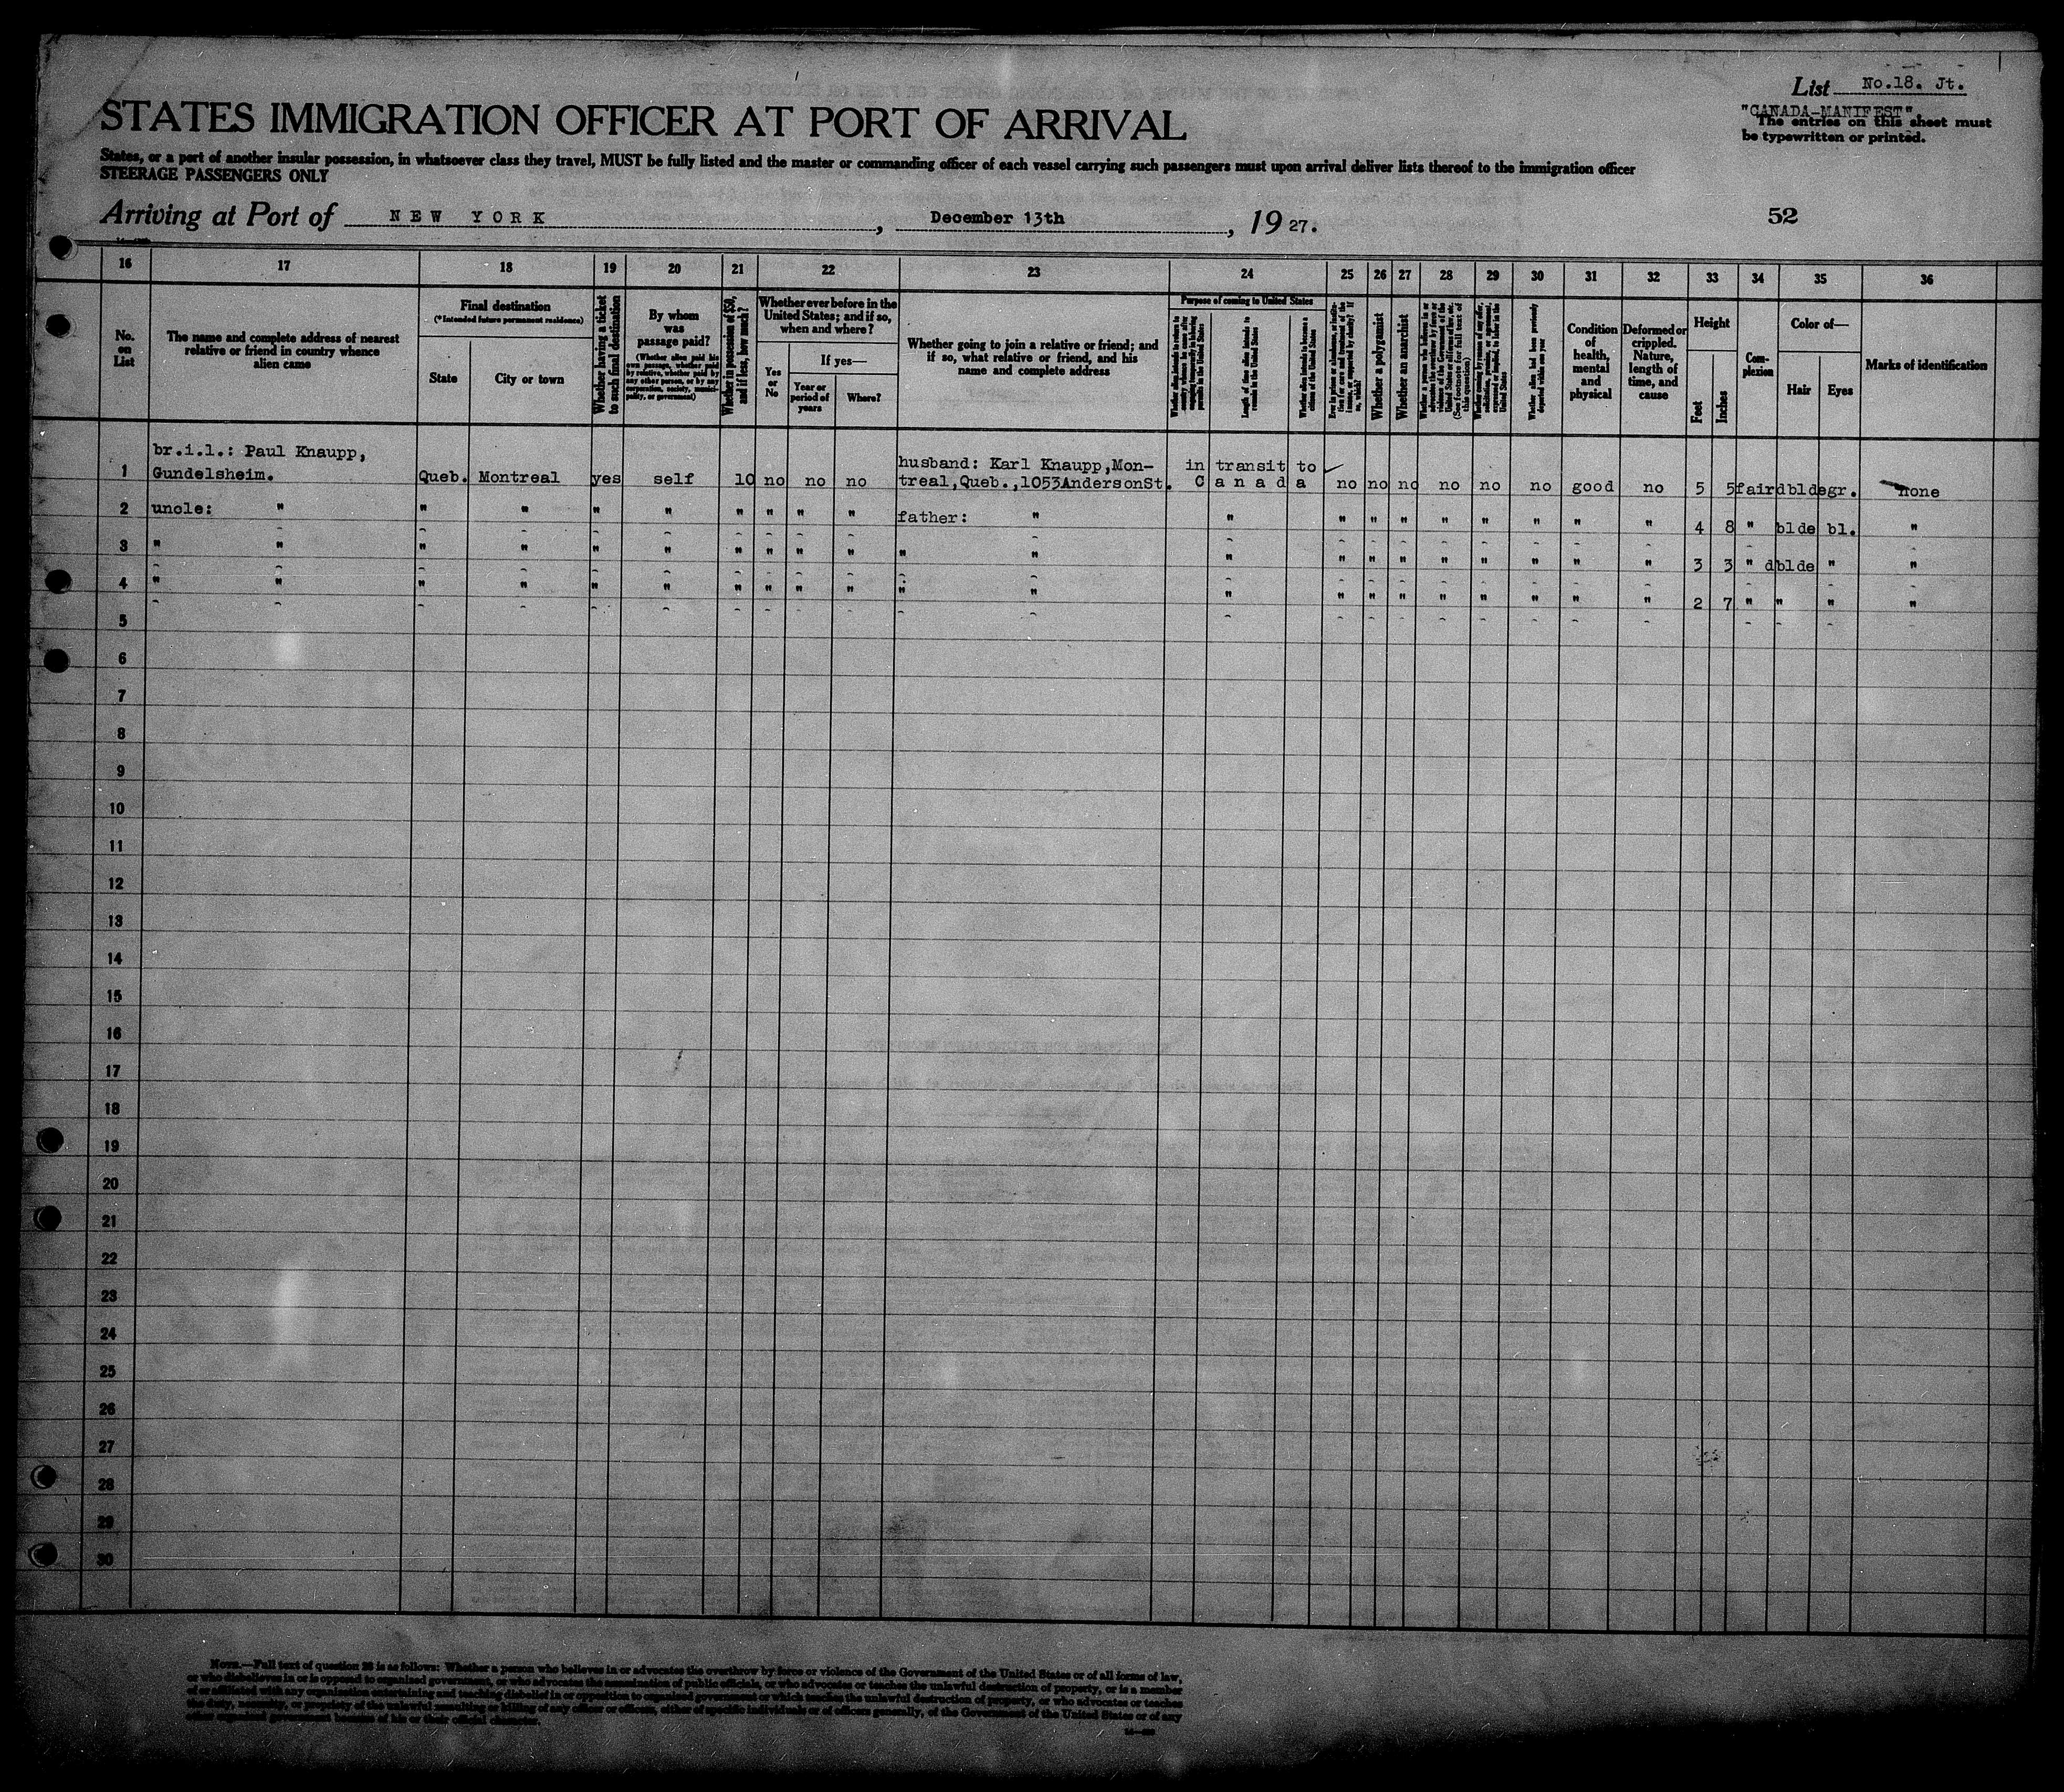 List No.18. Jt.
"CANADA-MANIFEST"
The entries on this sheet must
be typewritten or printed.
STATES IMMIGRATION OFFICER AT PORT OF ARRIVAL
States, or a port of another insular possession, in whatsoever class they travel, MUST be fully listed and the master or commanding officer of each vessel carrying such passengers must upon arrival deliver lists thereof to the immigration officer
STEERAGE PASSENGERS ONLY
Arriving at Port of NEW YORK, December 13th, 1927.
52
16 17 18 19 20 21 22 23 24 25 26 27 28 29 30 31 32 33 34 35 36
No. on List
The name and complete address of nearest
relative or friend in country whence
alien came
Final destination
(*Intended future permanent residence)
State
City or town
Whether having a ticket
to such final destination
By whom
was
passage paid?
(Whether alien paid his
own passage, whether paid
by relative, whether paid by
any other person, or by any
corporation, society, munici-
pality, or government)
Whether in possession of $50,
and if less, how much?
Whether ever before in the
United States; and if so,
when and where?
Yes
or
No
If yes—
Year or
period of
years
Where?
Whether going to join a relative or friend; and
if so, what relative or friend, and his
name and complete address
Purpose of coming to United States
Length of time alien intends to
remain in the United States
Whether alien intends to become a
citizen of the United States
Whether a polygamist
Whether an anarchist
Whether alien had been previously
deported within one year
Condition
of
health,
mental
and
physical
Deformed or
crippled.
Nature,
length of
time, and
cause
Height
Feet
Inches
Com-
plexion
Color of—
Hair
Eyes
Marks of identification
1 br.i.l.: Paul Knaupp,
Gundelsheim. Queb. Montreal yes self 10 no no no husband: Karl Knaupp,Mon-
treal,Queb.,1053AndersonSt. in transit to
Canada no no no no no no good no 5 5 fair dblde gr. none
2 uncle: " " " " " " " " " father: " " " " " " " " " " 4 8 " blde bl. "
3 " " " " " " " " " " " " " " " " " " " " " 3 3 " dblde " "
4 " " " " " " " " " " " " " " " " " " " " " 2 7 " " " "
5
6
7
8
9
10
11
12
13
14
15
16
17
18
19
20
21
22
23
24
25
26
27
28
29
30
NOTE.—Full text of question 28 is as follows: Whether a person who believes in or advocates the overthrow by force or violence of the Government of the United States or of all forms of law,
or who disbelieves in or is opposed to organized government, or who advocates the assassination of public officials, or who advocates or teaches the unlawful destruction of property, or is a member
of or affiliated with any organization entertaining and teaching disbelief in or opposition to organized government or which teaches the unlawful destruction of property, or who advocates or teaches
the duty, necessity, or propriety of the unlawful assaulting or killing of any officer or officers, either of specific individuals or of officers generally, of the Government of the United States or of any
other organized government because of his or their official character.